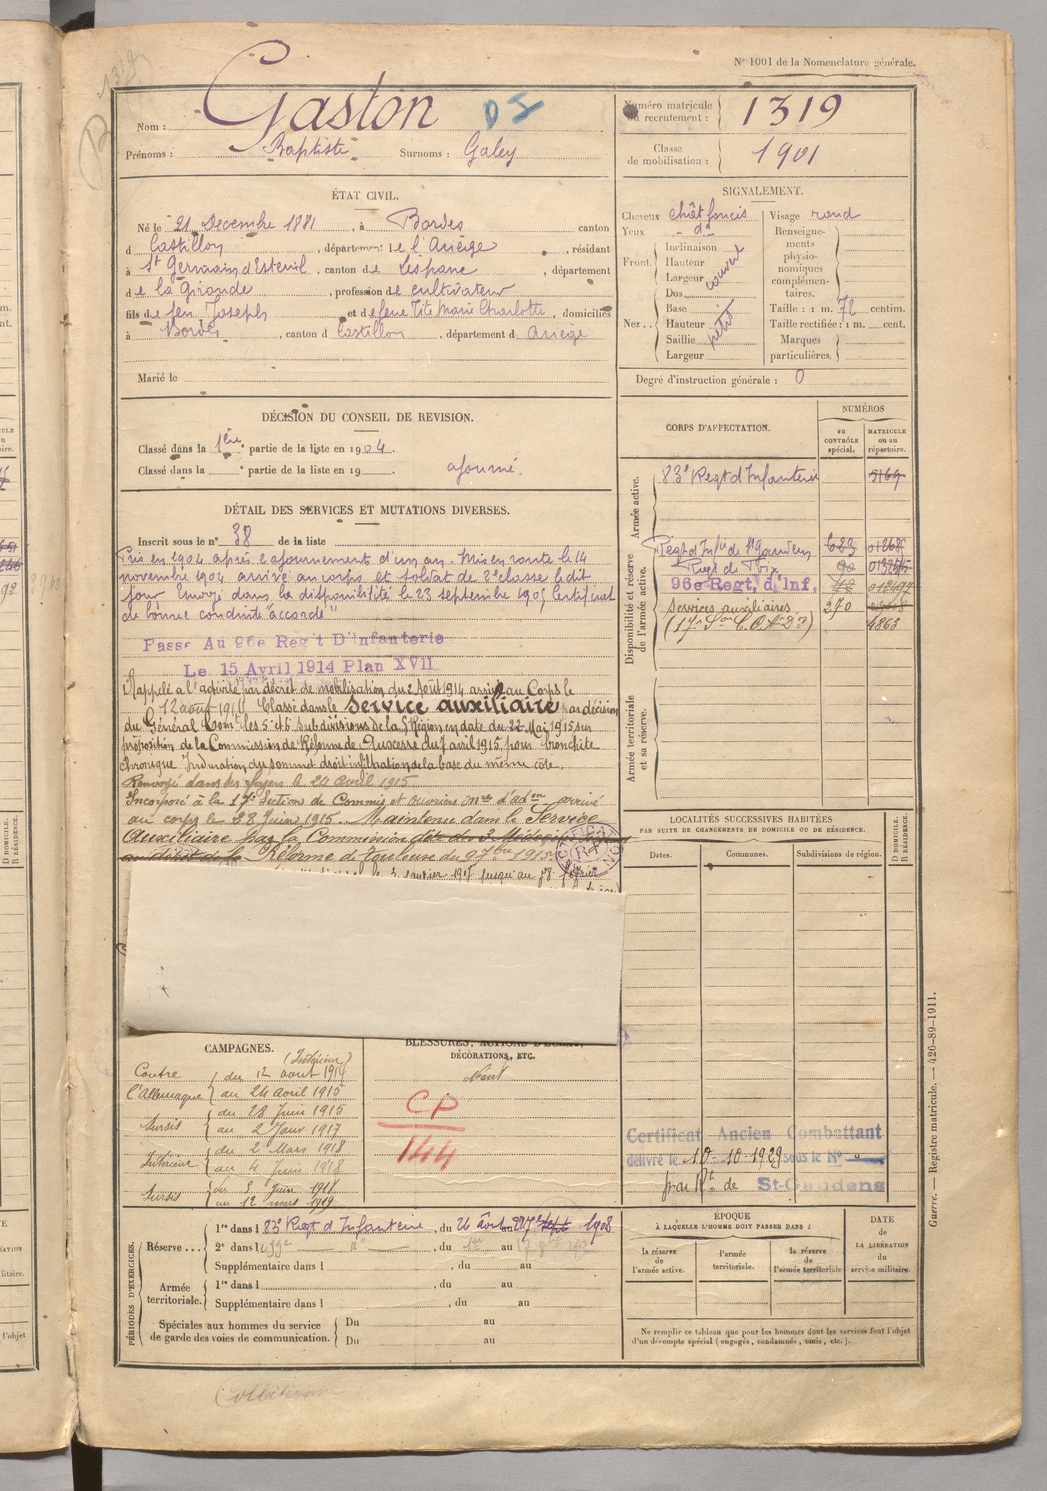 N° 1001 de la Nomenclature générale.
1319
Nom : Gaston
Prénoms : Baptiste Surnoms : Galey
Numéro matricule du recrutement : 1319
Classe de mobilisation : 1901
ÉTAT CIVIL.
Né le 21 Decembre 1881, à Bordes canton
d Castillon, département de l'Ariège, résidant
à St Germain d'Esteuil, canton de Lesparre, département
de la Gironde, profession de cultivateur
fils de feu Joseph et de feue Tite Marie Charlotte, domiciliés
à Bordes, canton d Castillon, département d Ariège
Marié le
SIGNALEMENT.
Cheveux chât foncés
Yeux d°
Front.
Inclinaison
Hauteur
Largeur
couvert
Nez..
Dos
Base
Hauteur
Saillie
Largeur
petit
Visage rond
Renseignements physionomiques complémentaires.
Taille : 1 m. 72 centim.
Taille rectifiée : 1 m. cent.
Marques particulières.
Degré d'instruction générale : 0
DÉCISION DU CONSEIL DE REVISION.
Classé dans la 1ère partie de la liste en 1904.
Classé dans la partie de la liste en 19 . ajourné.
DÉTAIL DES SERVICES ET MUTATIONS DIVERSES.
Inscrit sous le n° 38 de la liste
Pris en 1904 après l'ajournement d'un an. Mis en route le 14
novembre 1904 arrivé au corps et soldat de 2e classe le dit
jour Envoyé dans la disponibilité le 23 septembre 1905 Certificat
de bonne conduite "accordé"
Passe Au 96e Reg't D'Infanterie
Le 15 Avril 1914 Plan XVII
Rappelé a l'activité par décret de mobilisation du 2 Août 1914 arrivé au Corps le
12 août 1914 Classé dans le service auxiliaire par décision
du Général Comt les 5 et 6 Subdivisions de la Région en date du 22 Mai 1915 sur
proposition de la Commission de Réforme de du 7 avril 1915, pour bronchite
chronique Induration du sommet droit infiltration de la base du même côté.
Renvoyé dans ses foyers le 24 Avril 1915
Incorporé à la 17e Section de Commis et ouvriers mres d'adon arrivé
au corps le 28 Juin 1915. Maintenu dans le Service
Auxiliaire par la Commission
Réforme de Toulouse du 9 1915
CORPS D'AFFECTATION.
NUMÉROS
AU CONTRÔLE spécial.
MATRICULE ou au répertoire.
Armée active.
83e Regt d'Infanterie 5169
Disponibilité et réserve de l'armée active.
Regt d'Infie de St Gaudens
Regt de Foix
96e Regt, d'Inf.
Services auxiliaires 270
(17e Son C.O.A.) 4863
Armée territoriale et sa réserve.
LOCALITÉS SUCCESSIVES HABITÉES
PAR SUITE DE CHANGEMENTS DE DOMICILE OU DE RÉSIDENCE.
Dates. Communes. Subdivisions de région. D DOMICILE. R RÉSIDENCE.
CAMPAGNES.
(Intérieur)
Contre l'Allemagne
du 12 aout 1914
au 24 avril 1915
du 28 Juin 1915
au 2 Janv 1917
Sursis
Intérieur
du 2 Mars 1918
au 4 Juin 1918
Sursis
du 5 Juin 1918
au 12 mars 1919
BLESSURES, ACTIONS D'ÉCLAT,
DÉCORATIONS, ETC.
Néant
CP
144
Certificat Ancien Combattant
délivré le 10-10-1929 sous le N°
par Rt de St-Gaudens
PÉRIODES D'EXERCICES.
Réserve...
1re dans l 83e Regt d'Infanterie, du 26 Août au 1908
2e dans l , du au
Supplémentaire dans l , du au
Armée territoriale.
1re dans l , du au
Supplémentaire dans l , du au
Spéciales aux hommes du service de garde des voies de communication.
Du au
Du au
ÉPOQUE
À LAQUELLE L'HOMME DOIT PASSER DANS :
la réserve de l'armée active. l'armée territoriale. la réserve de l'armée territoriale
DATE de LA LIBÉRATION du service militaire.
Ne remplir ce tableau que pour les hommes dont les services font l'objet
d'un décompte spécial (engagés, condamnés, omis, etc.).
Guerre. — Registre matricule. — 426-89-1911.